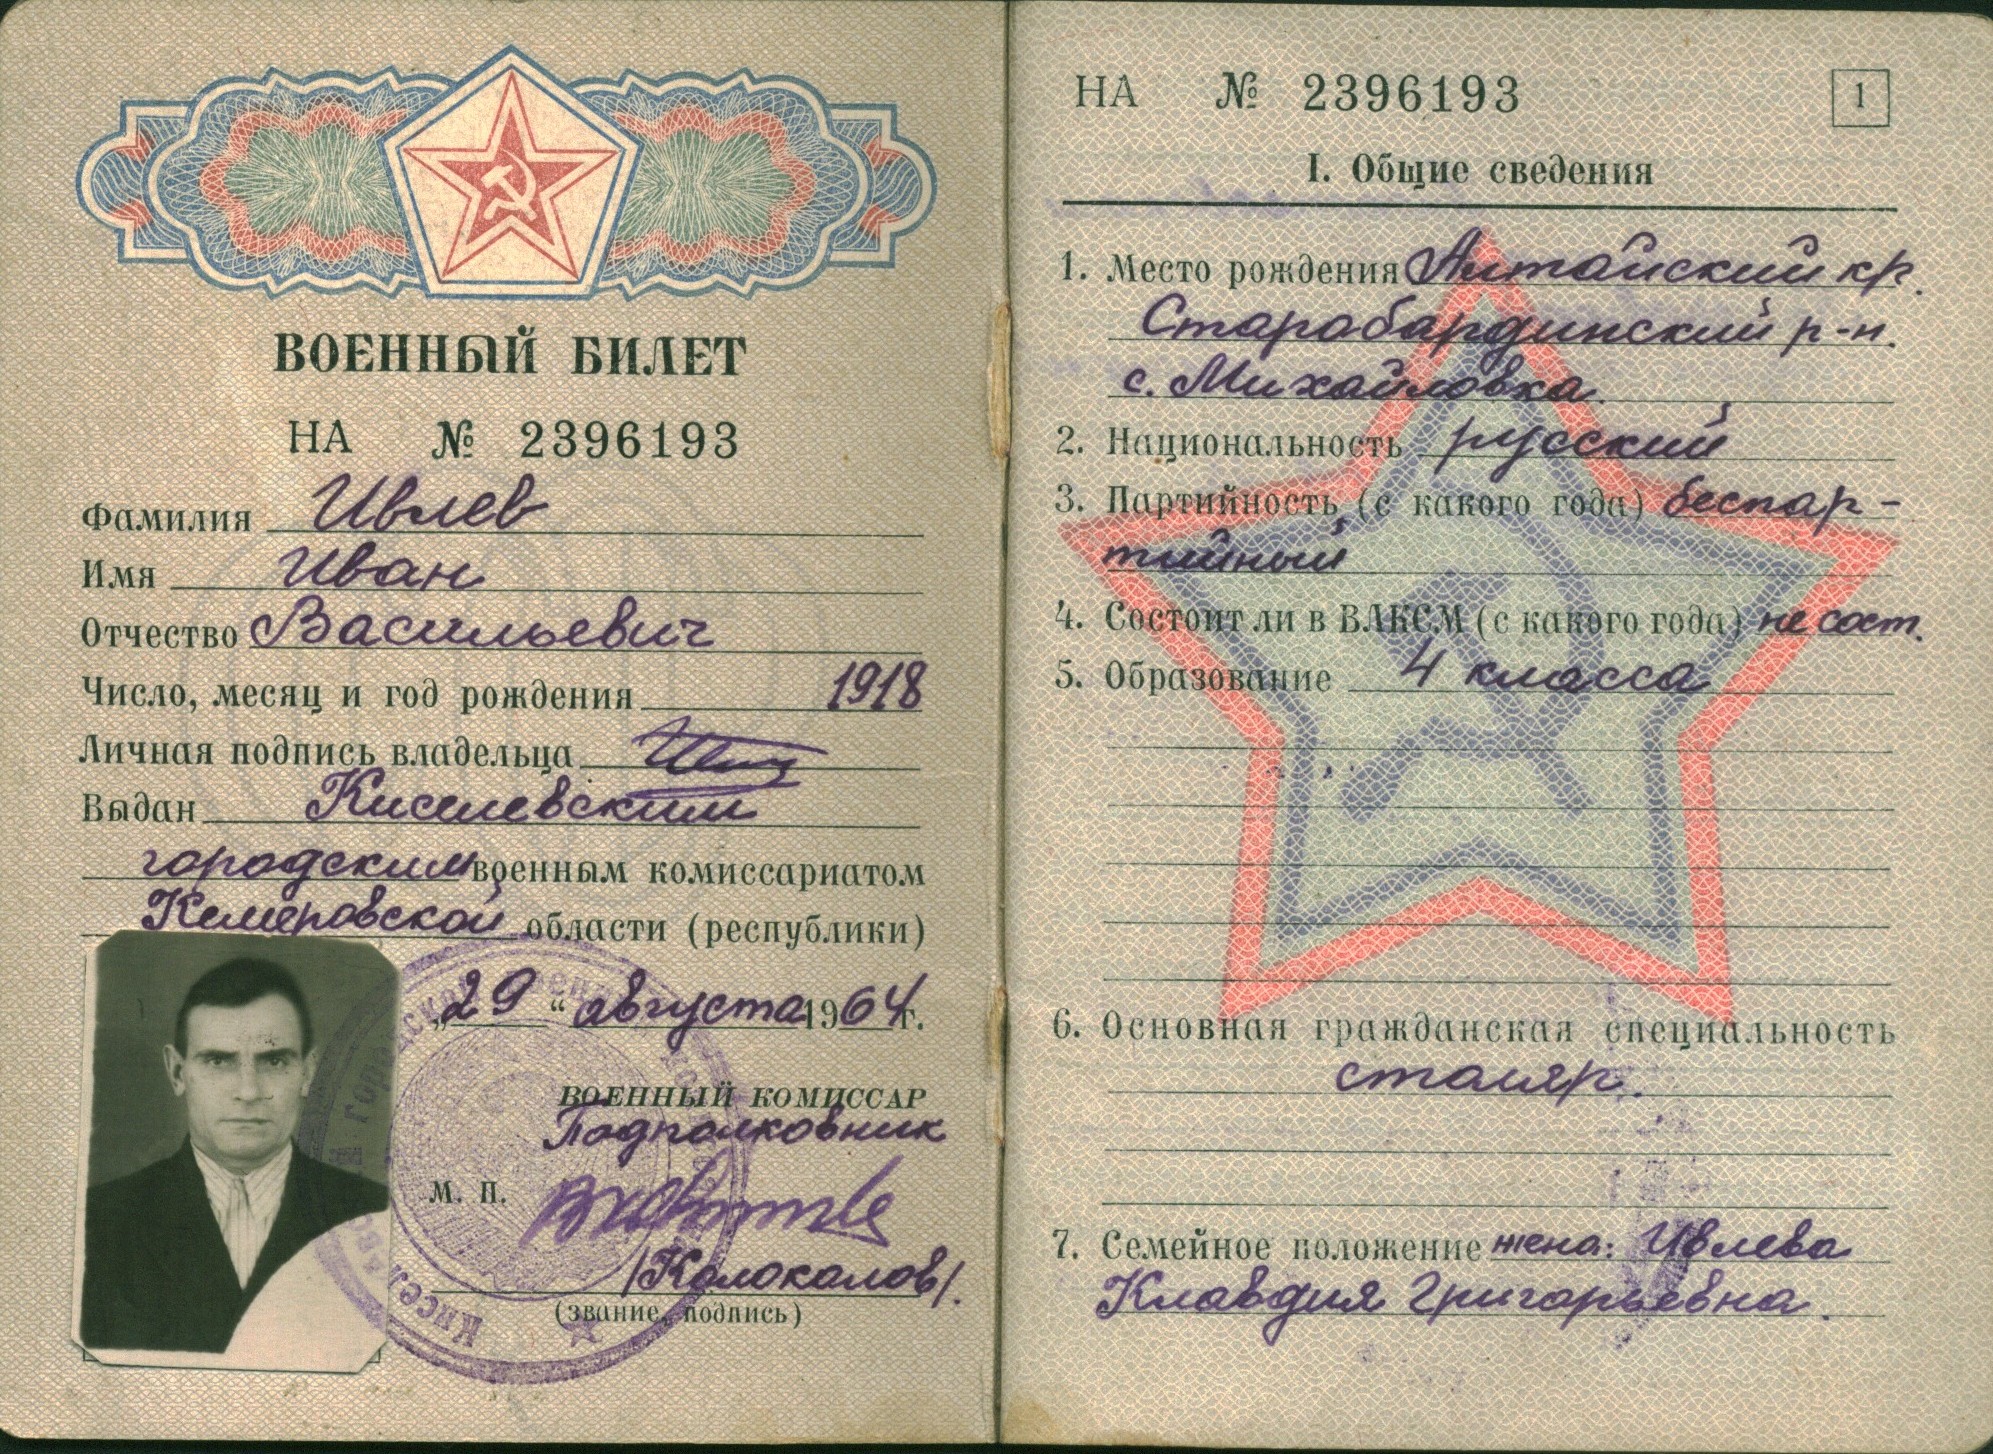 ВОЕННЫЙ БИЛЕТ
НА № 2396193
Фамилия Ивлев
Имя Иван
Отчество Васильевич
Число, месяц и год рождения 1918
Личная подпись владельца
Выдан Киселевским
городским военным комиссариатом
Кемеровской области (республики)
„29“ августа 1964 г.
ВОЕННЫЙ КОМИССАР
Подполковник
М. П.
/Колоколов/.
(звание, подпись)
НА № 2396193
1
I. Общие сведения
1. Место рождения Алтайский кр.
Старобардинский р-н.
с. Михайловка.
2. Национальность русский
3. Партийность (с какого года) беспар-
тийный
4. Состоит ли в ВЛКСМ (с какого года) не сост.
5. Образование 4 класса
6. Основная гражданская специальность
столяр.
7. Семейное положение жена: Ивлева
Клавдия Григорьевна.